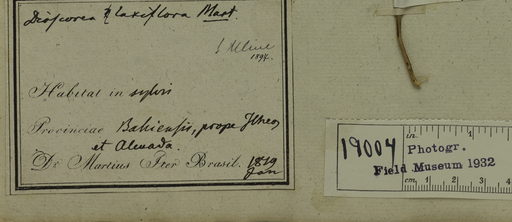 Dioscorea laxiflora Mart.
Uline
1897.
Habitat in sylvis
Provinciae Bahiensis, prope Ilheos
et Almada.
Dr. Martius Iter Brasil. 1819
Jan
19004 Photogr.
Field Museum 1932
in. 1
cm. 1 2 3 4